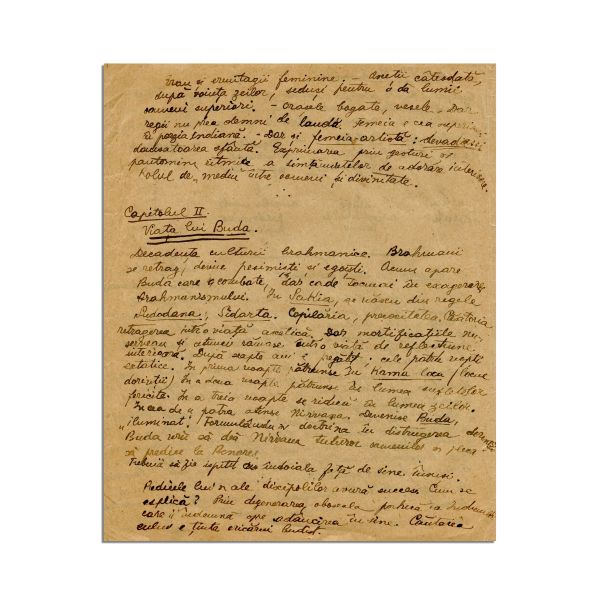 și ermitagii feminine. - Aneții câteodată,
după voința zeilor, seduși pentru a da lumii
oameni superiori. - Orașele bogate, vesele. Dar
regii nu prea demni de laudă. Femeia e cea superioară
poezia Indiană. - Dar și femeia-artistă: devadassi
dansatoarea sfântă. Exprimarea prin gesturi și
pantomim ritmice a simțimintelor de adorare,
rolul de mediu între oameni și divinitate.
Capitolul II.
Viața lui Buda.
Decadența culturii brahmanice. Brahmanii
se retrag, devine pesimiști și egoiști. Acum apare
Buda care combate, dar cade tocmai în
Brahmanismului. În Sakia, se născu din regele
Sudodana, Sidarta. Copilăria, precocitatea,
retragerea într'o viață ascetică. Dar mortificațiile
și atunci rămase într'o viață de reflecțiune
interioară. După șapte ani e : cele patru nopți
extatice. În prima noapte pătrunse în Kama loca (locul
dorinții) În a doua noapte pătrunse în lumea sufletelor
fericite. În a treia noapte se ridică în lumea zeilor.
În cea de a patra atinse Nirvana. Devenise Buda,
"iluminat". Formulându-și doctrina în distrugerea dorinții
Buda voia să dea Nirvana tuturor oamenilor și pleca
să predice la Benares.
Trebuia să fie ispitit de îndoiala față de sine însuși.
Predicele lui și ale discipolilor avură succes. Cum se
explică? Prin degenerarea, oboseala
care îi îndemna spre adâncirea în sine. Căutarea
e ținta oricărui Budist.